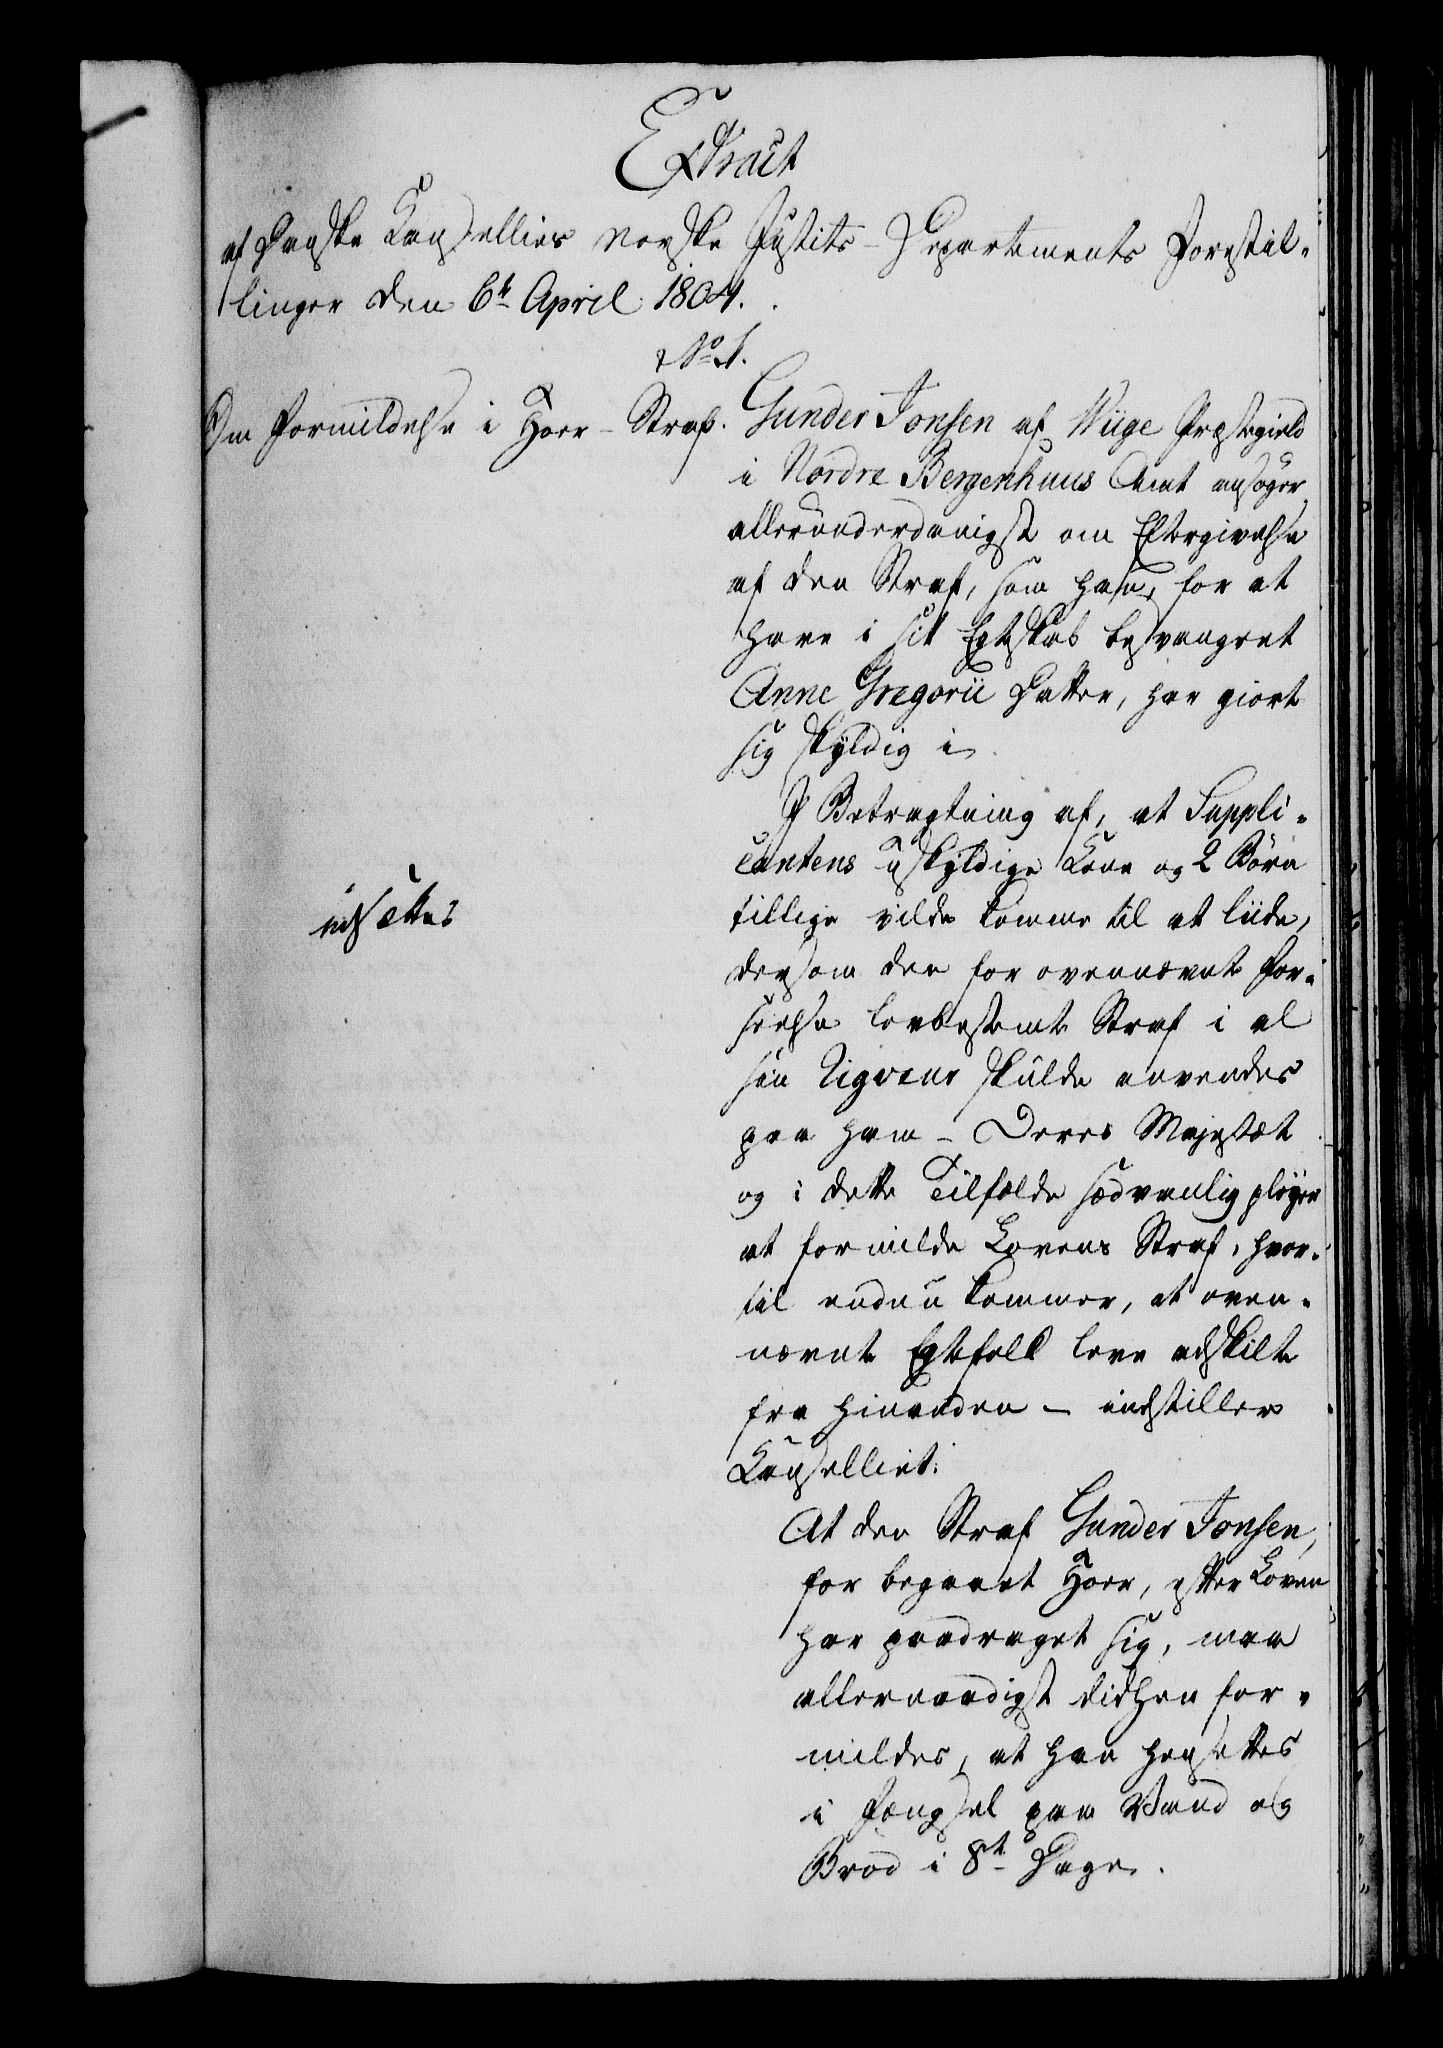 Extract
af Danske Kancellies norske Justits-Departements Forestil-
linger den 6te April 1804.
No 1.
Om Formildelse i Hoer-Straf.
Gunder Jonsen af Wiige Præstegield
i Nordre Bergenhuus Amt ansøger
allerunderdanigst om Eftergivelse
af den Straf, som han, for at
have i sit Egteskab besvangret
Anne Gregorii Datter, har giort
sig skyldig i.
I Betragtning af, at Suppli-
cantens uskyldige Kone og 2 Börn
tillige vilde komme til at liide,
dersom den for ovennævnte For-
seelse lovbestemte Straf i al
sin Rigveur skulde anvendes
paa ham - Deres Majestæt
og i dette Tilfælde sædvanlig pleyer
at formilde Lovens Straf, hvor-
til endnu kommer, at oven-
nævnte Egtefolk leve adskilte
fra hinanden - indstiller
Kancelliet:
indsættes
At den Straf Gunder Jonsen,
for begaaet Hoer, efter Loven
har paadraget sig, maa
allernaadigst didhen for-
mildes, at han hensettes
i Fængsel paa Vand og
Bröd i 8te Dage.